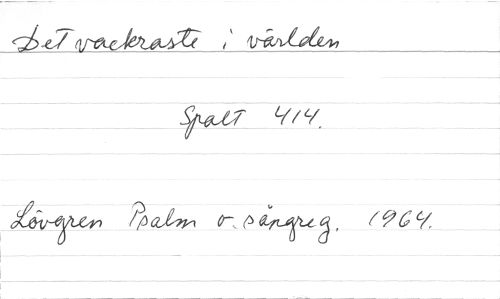 Det vackraste i världen
Spalt 414.
Lövgren Psalm o. sångreg. 1964.